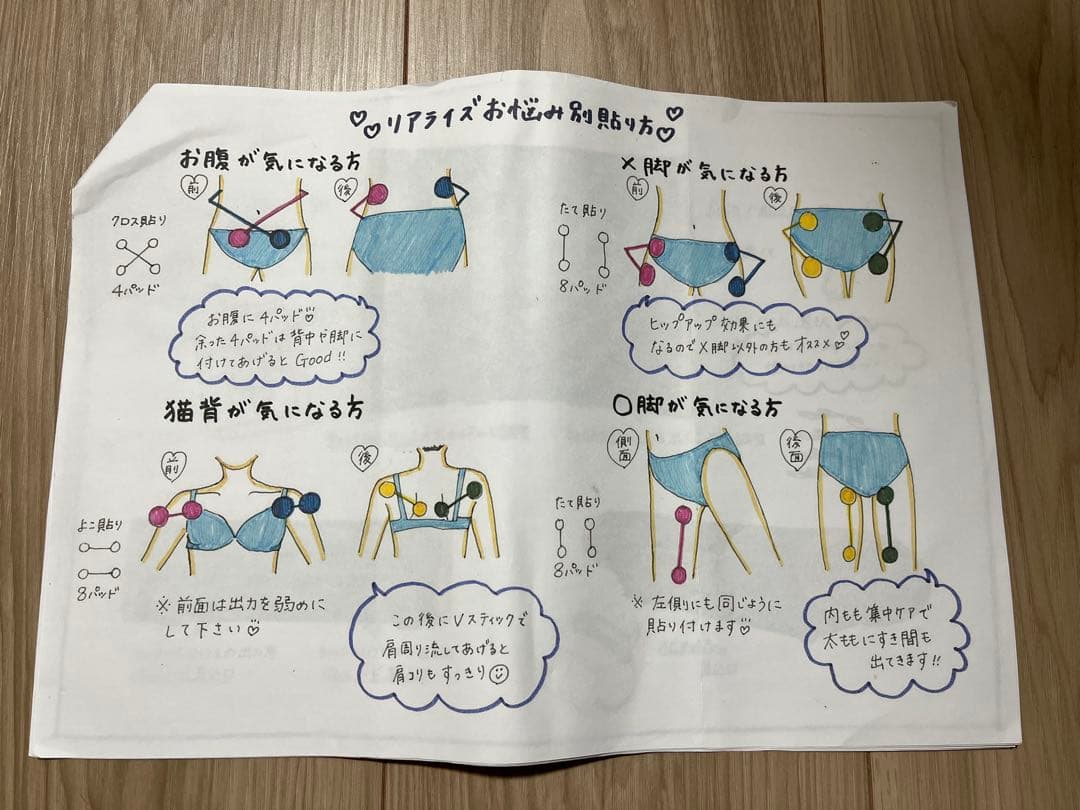 ♡♡リアライズお悩み別貼り方♡♡
お腹が気になる方
前
後
クロス貼り
4パッド
お腹に4パッド♡
余った4パッドは背中や脚に
付けてあげるとGood!!
X脚が気になる方
前
後
たて貼り
8パッド
ヒップアップ効果にも
なるのでX脚以外の方もオススメ♡
猫背が気になる方
前
後
よこ貼り
8パッド
※前面は出力を弱めに
して下さい♡
この後にVスティックで
肩周り流してあげると
肩コリもすっきり☺
O脚が気になる方
側面
後面
たて貼り
8パッド
※左側にも同じように
貼り付けます♡
内もも集中ケアで
太ももにすき間も
出てきます!!